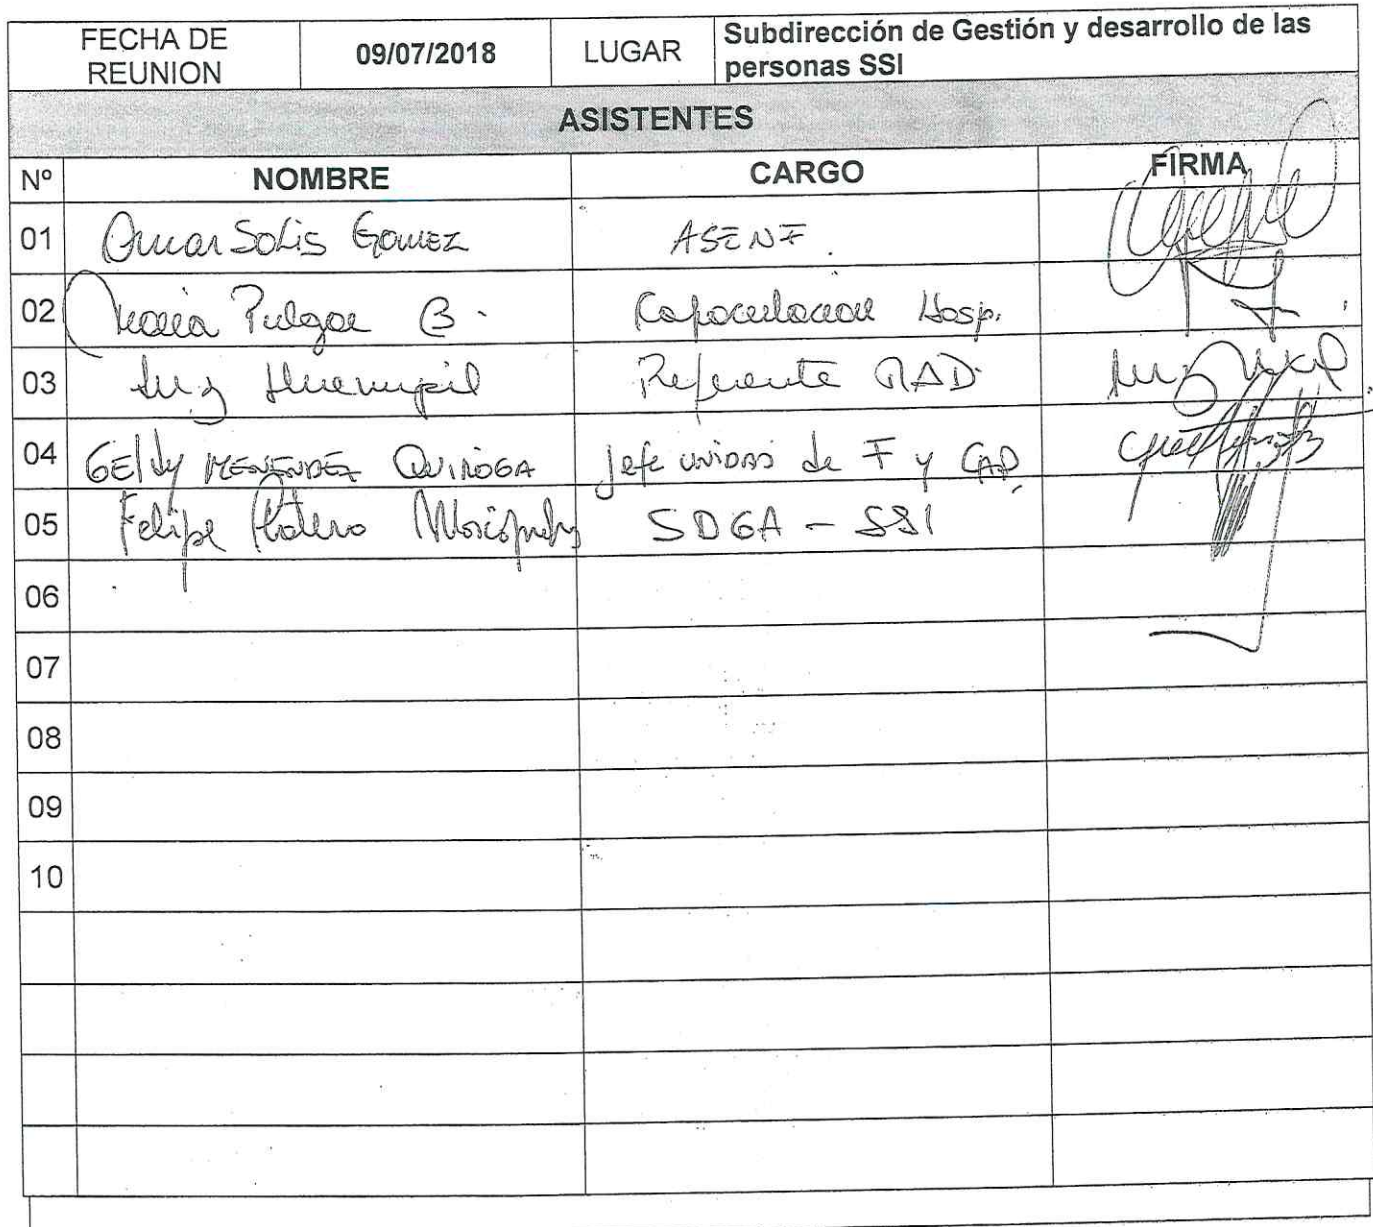 FECHA DE REUNION 09/07/2018 LUGAR Subdirección de Gestión y desarrollo de las personas SSI
ASISTENTES
Nº NOMBRE CARGO FIRMA
01 Omar Solis Gomez ASENF.
02 Maria Pulgar B. Capacitacion Hosp.
03 Luz Huenupil Referente RAD
04 Geldy MENENDEZ QUIROGA Jefe UNIDAD de F y CAP.
05 Felipe Platero SDGA - SSI
06
07
08
09
10